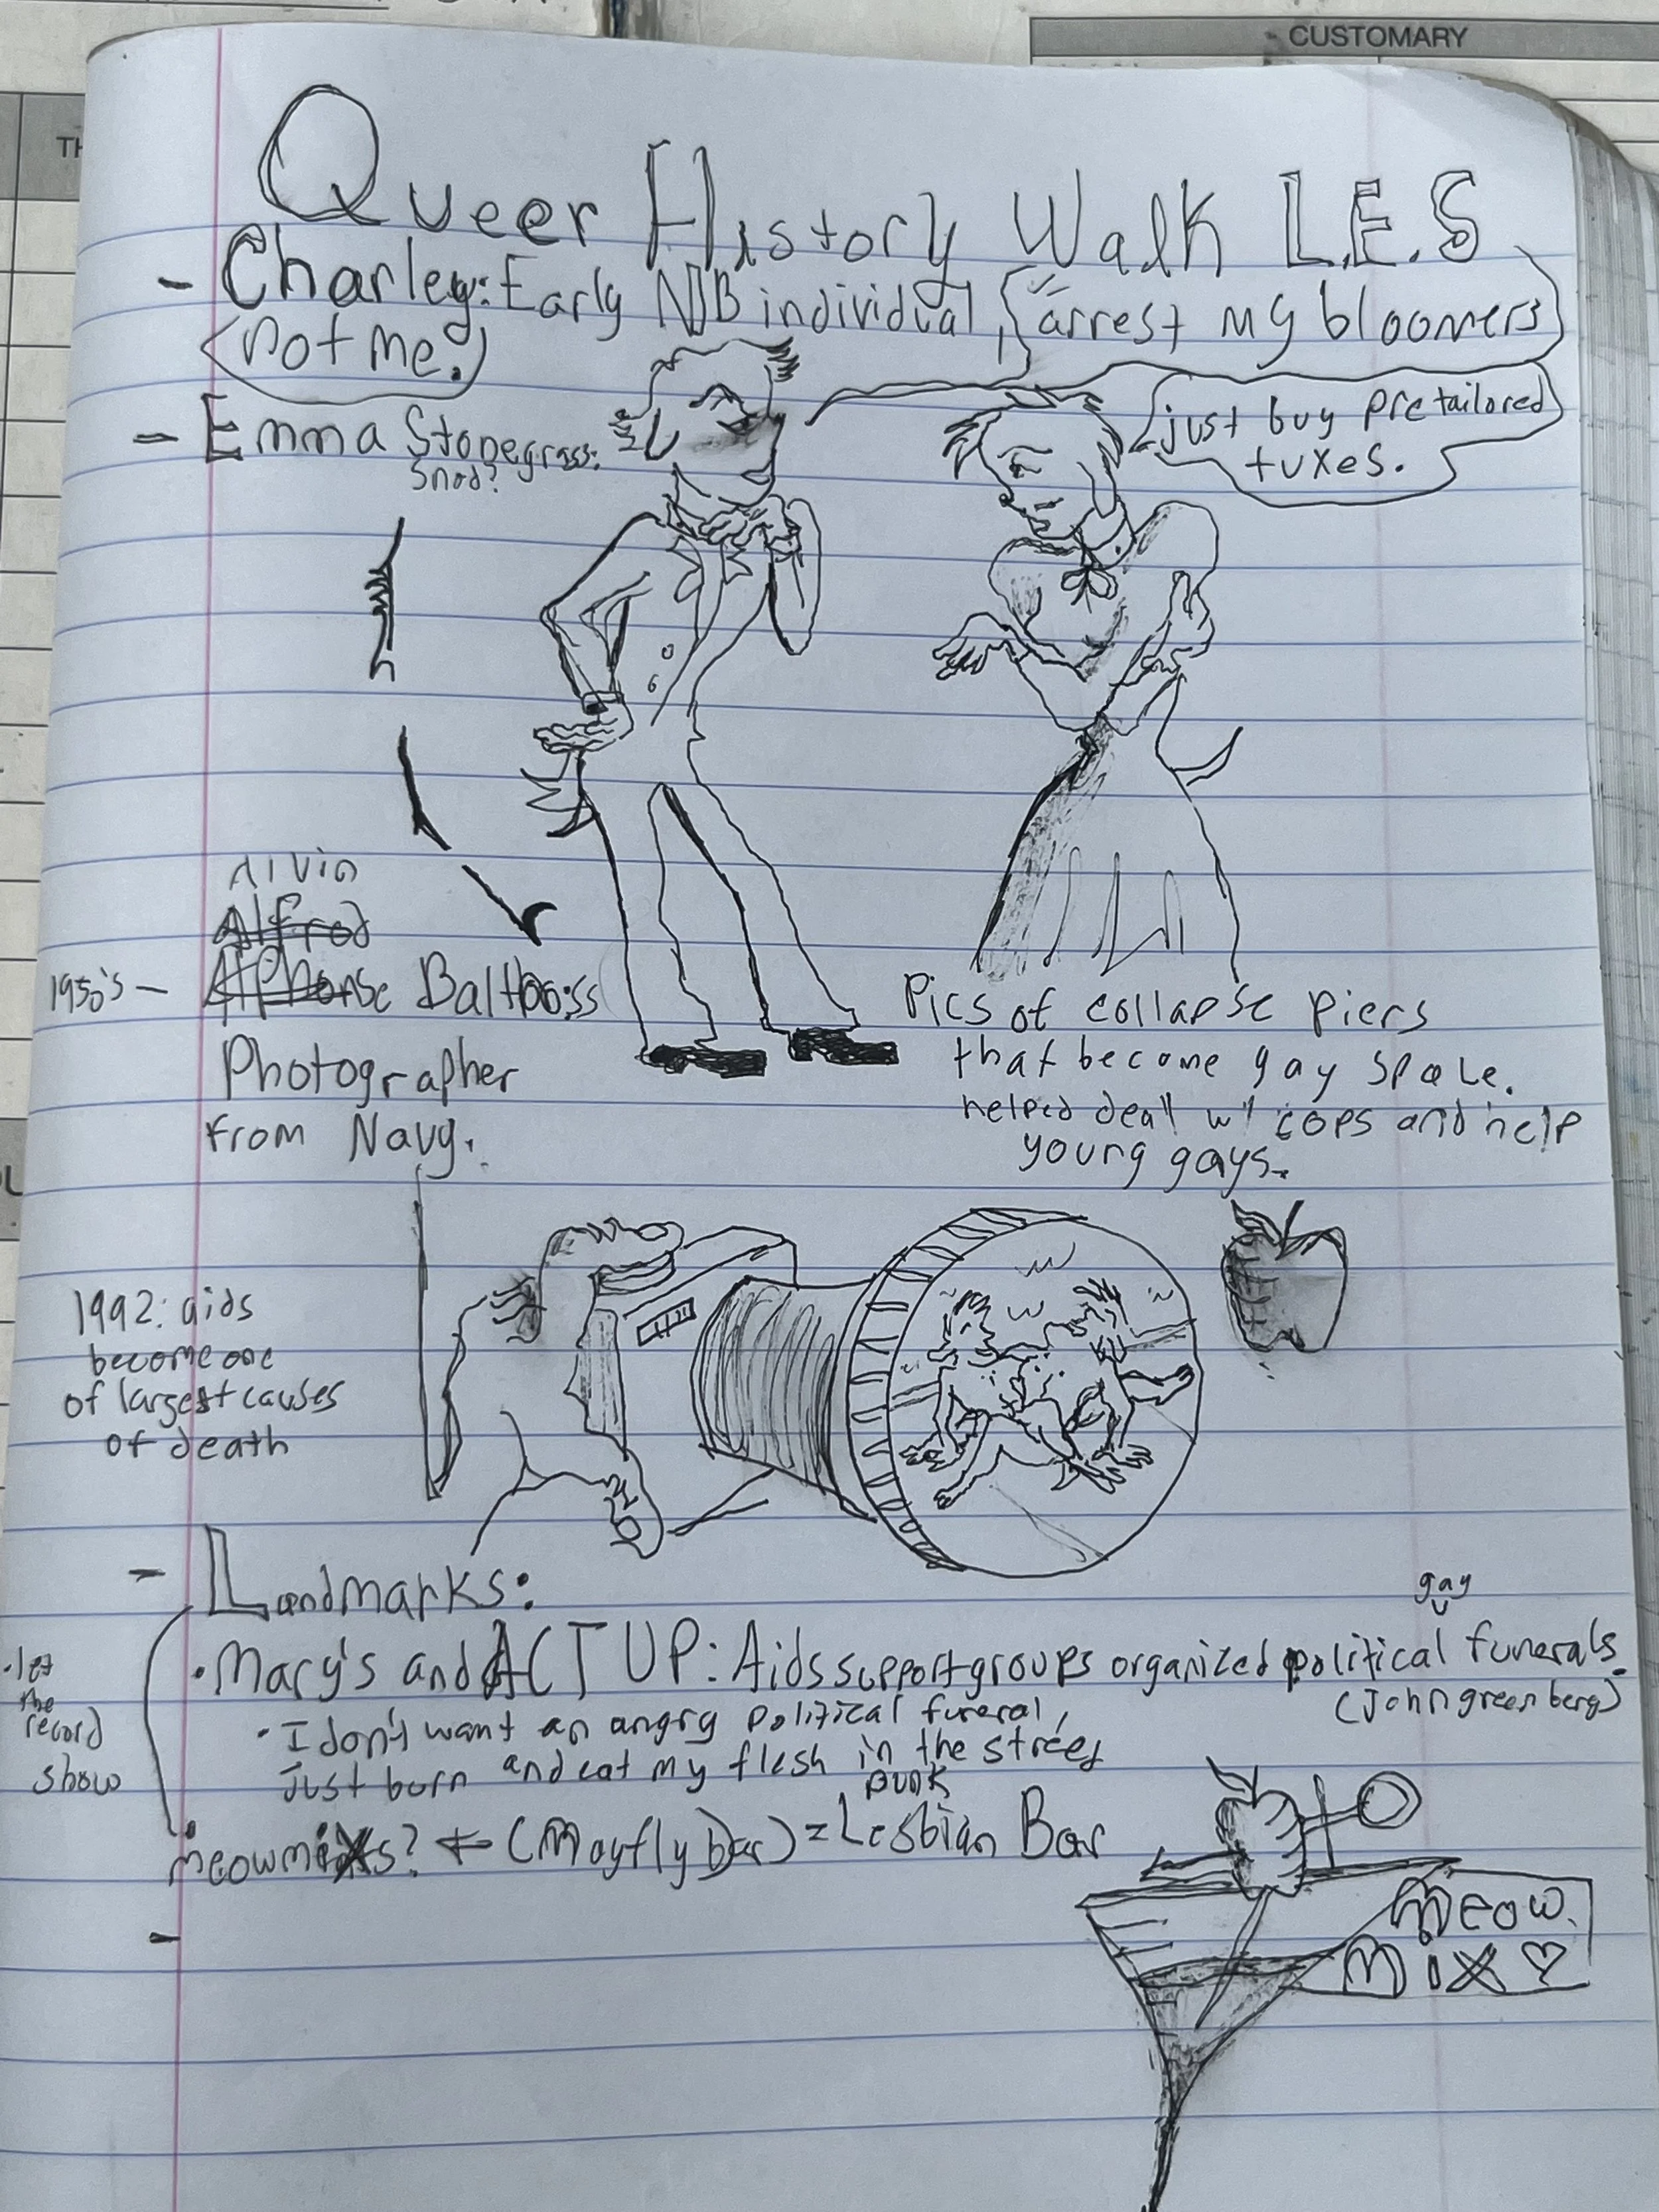 CUSTOMARY
TH
Queer History Walk L.E.S
- Charley: Early NB individual, "arrest my bloomers
not me.
just buy pretailored
tuxes.
- Emma Stonegrass:
Snod?
Alvin
Alfred
1950's - Alphonse Baltrooss
Photographer
from Navy.
Pics of collapse piers
that become gay space.
helped deal w/ cops and help
young gays.
1992: aids
become one
of largest causes
of death
- Landmarks:
gay
• Mary's and ACT UP: Aids support groups organized political funerals.
(John greenberg)
• I don't want an angry political funeral,
just burn and eat my flesh in the street
• let
the
record
show
punk
meowmixs? ← (Mayfly bar) = Lesbian Bar
-
Meow
Mix ♡